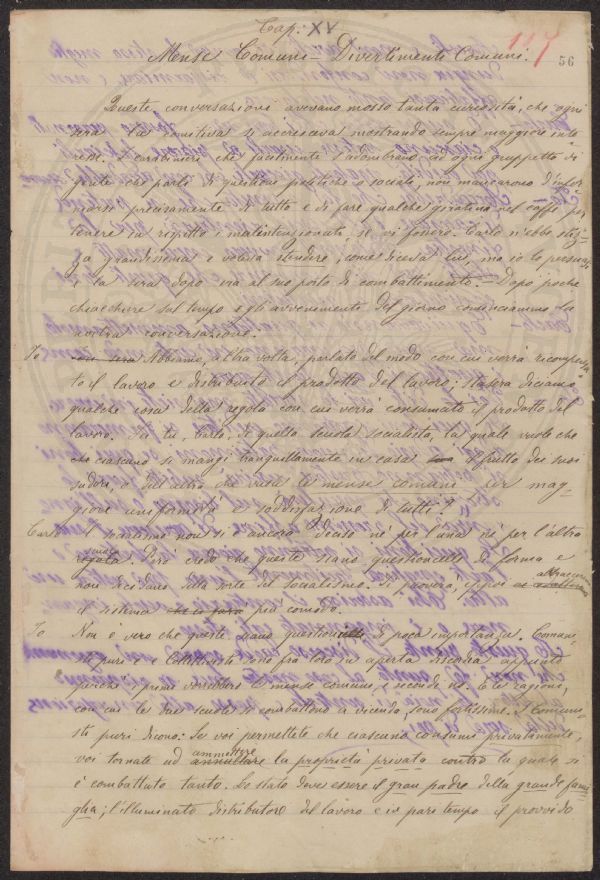 Cap: XV
117
56
Mense Comuni - Divertimenti Comuni.
Queste conversazioni avevano mosso tanta curiosità, che ogni
sera la comitiva si accresceva mostrando sempre maggiore inte-
resse. I carabinieri che facilmente s'adombrano ad ogni gruppetto di
gente che parli di questione politiche o sociale, non mancarono d'infor-
marsi precisamente di tutto e di fare qualche giratina nel caffè per
tenere in rispetto i malintenzionati se vi fossero. Carlo n'ebbe stiz-
za grandissima e voleva stendere, come diceva lui, ma io lo persuasi
e la sera dopo era al suo posto di combattimento. Dopo poche
chiacchere sul tempo e gli avvenimenti del giorno cominciammo la
nostra conversazione.
Io
Abbiamo, altra volta, parlato del modo con cui verrà ricompensa-
to il lavoro e distribuito il prodotto del lavoro; stasera diciamo
qualche cosa della regola con cui verrà consumato il prodotto del
lavoro. Sei tu, Carlo, di quella scuola socialista, la quale vuole che
che ciascuno si mangi tranquillamente in casa il frutto dei suoi
sudori, o dell'altra che vuole le mense comuni per mag-
giore uniformità e soddisfazione di tutti?
Carlo
non si è ancora deciso nè per l'una nè per l'altra
scuola
regola. Però credo che queste siano questioncelle di forma e
non decidano della sorte del socialismo. Si proverà, eppoi
il sistema più comodo.
Io
Non è vero che queste siano questioni di poca importanza. Comuni-
sti puri e Collettivisti sono fra loro in aperta discordia appunto
perchè i primi vorrebbero le mense comuni, e i secondi no. E le ragioni,
con cui le due scuole si combattono a vicenda, sono fortissime. I comuni-
sti puri dicono: Se voi permettete che ciascuno consumi privatamente,
ammettere
voi tornate ad annullare la proprietà privata contro la quale si
è combattuto tanto. Lo stato deve essere il gran padre della grande fami-
glia; l'illuminato distributore del lavoro e in pari tempo il provvido